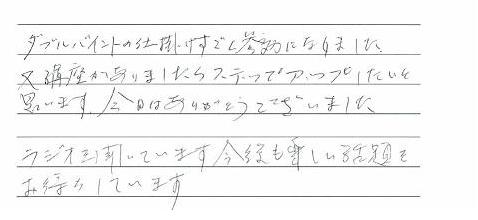 ダブルバインドの仕掛けすごく参考になりました
又講座がありましたらステップアップしたいと
思います。今日はありがとうございました
ラジオを聞いています今後も楽しい話題を
お待ちしています